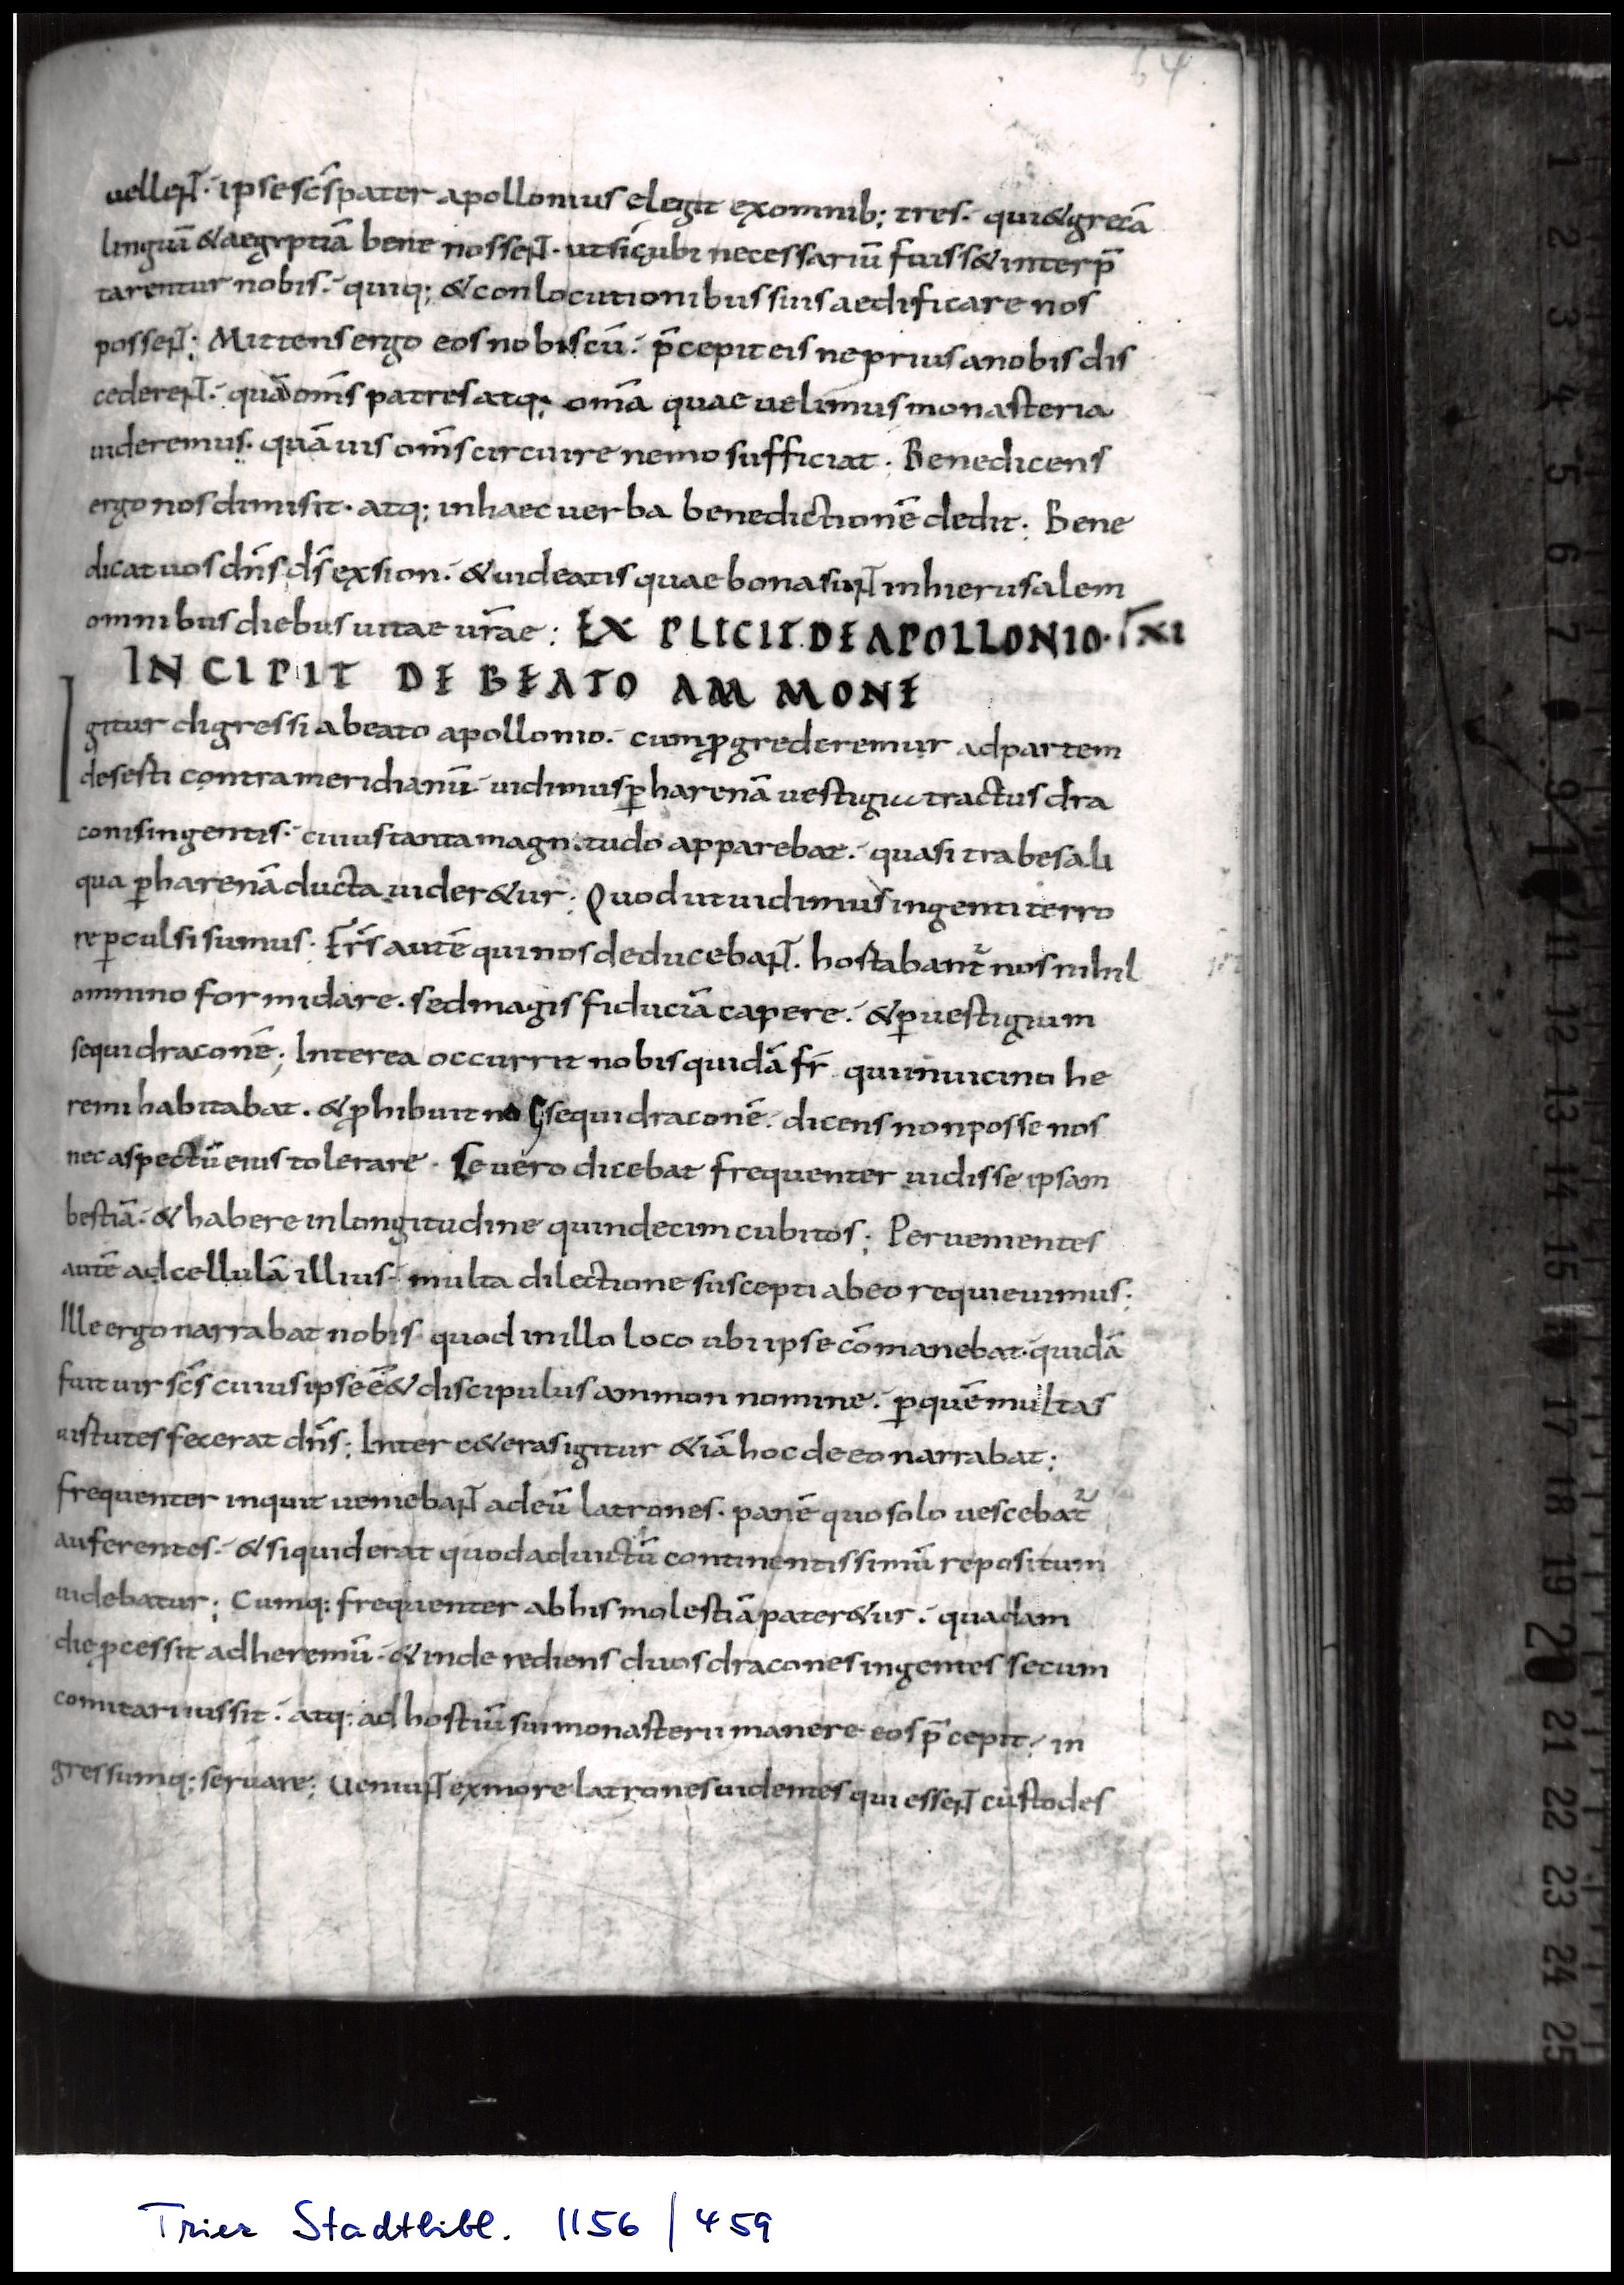 64
uellen̄t· ipse sc̄s pater apollonius elegit ex omnib; tres· qui & grecā
linguā & aegyptiā bene nossen̄t· ut sicubi necessariū fuiss& interp̄
tarentur nobis· quiq; & conlocutionibus suis aedificare nos
possen̄t; Mittens ergo eos nobiscū· p̄cepit eis ne prius a nobis dis
cederen̄t· quā om̄s patres atq; om̄a quae uelimus monasteria
uideremus· quāuis om̄s circuire nemo sufficiat· Benedicens
ergo nos dimisit· atq; in haec uerba benedictionē dedit; Bene
dicat uos dn̄s ds̄ ex sion· & uideatis quae bona sun̄t in hierusalem
omnibus diebus uitae ur̄ae; EXPLICIT DE APOLLONIO·
INCIPIT DE BEATO AMMONE
Igitur digressi a beato apollonio· cum ꝓgrederemur ad partem
deserti contra meridianū uidimus ꝑ harenā uestigia tractus dra
conis ingentis· cuius tanta magnitudo apparebat· quasi trabes ali
qua ꝑ harenā ducta uider&ur; Quod ut uidimus ingenti terro
re ꝑculsi sumus· Fr̄s autē qui nos deduceban̄t· hortabant᷑ nos nihil
omnino formidare· sed magis fiduciā capere· & ꝑ uestigium
sequi draconē; Interea occurrit nobis quidā fr̄ qui in uicino he
remi habitabat· & ꝓhibuit nos sequi draconē· dicens non posse nos
nec aspectū eius tolerare· Se uero dicebat frequenter uidisse ipsam
bestiā· & habere in longitudine quindecim cubitos; Peruenientes
autē ad cellulā illius· multa dilectione suscepti ab eo requieuimus;
Ille ergo narrabat nobis quod in illo loco ubi ipse cōmanebat· quidā
fuit uir sc̄s cuius ipse ēē& discipulus ammon nomine· ꝑ quē multas
uirtutes fecerat dn̄s; Inter c&eras igitur &iā hoc de eo narrabat;
frequenter inquit ueniebān̄t ad eū latrones· panē quo solo uescebat᷑
auferentes· & si quid erat quod ad uictū continentissimū repositum
uidebatur; Cumq; frequenter ab his molestiā pater&ur· quadam
die ꝓcessit ad heremū· & inde rediens duos dracones ingentes secum
comitari iussit· atq; ad hostiū sui monasterii manere eos p̄cepit· in
gressumq; seruare; Ueniun̄t ex more latrones uidentes qui essen̄t custodes
1 2 3 4 5 6 7 8 9 10 11 12 13 14 15 16 17 18 19 20 21 22 23 24 25
Trier Stadtbibl. 1156 / 459